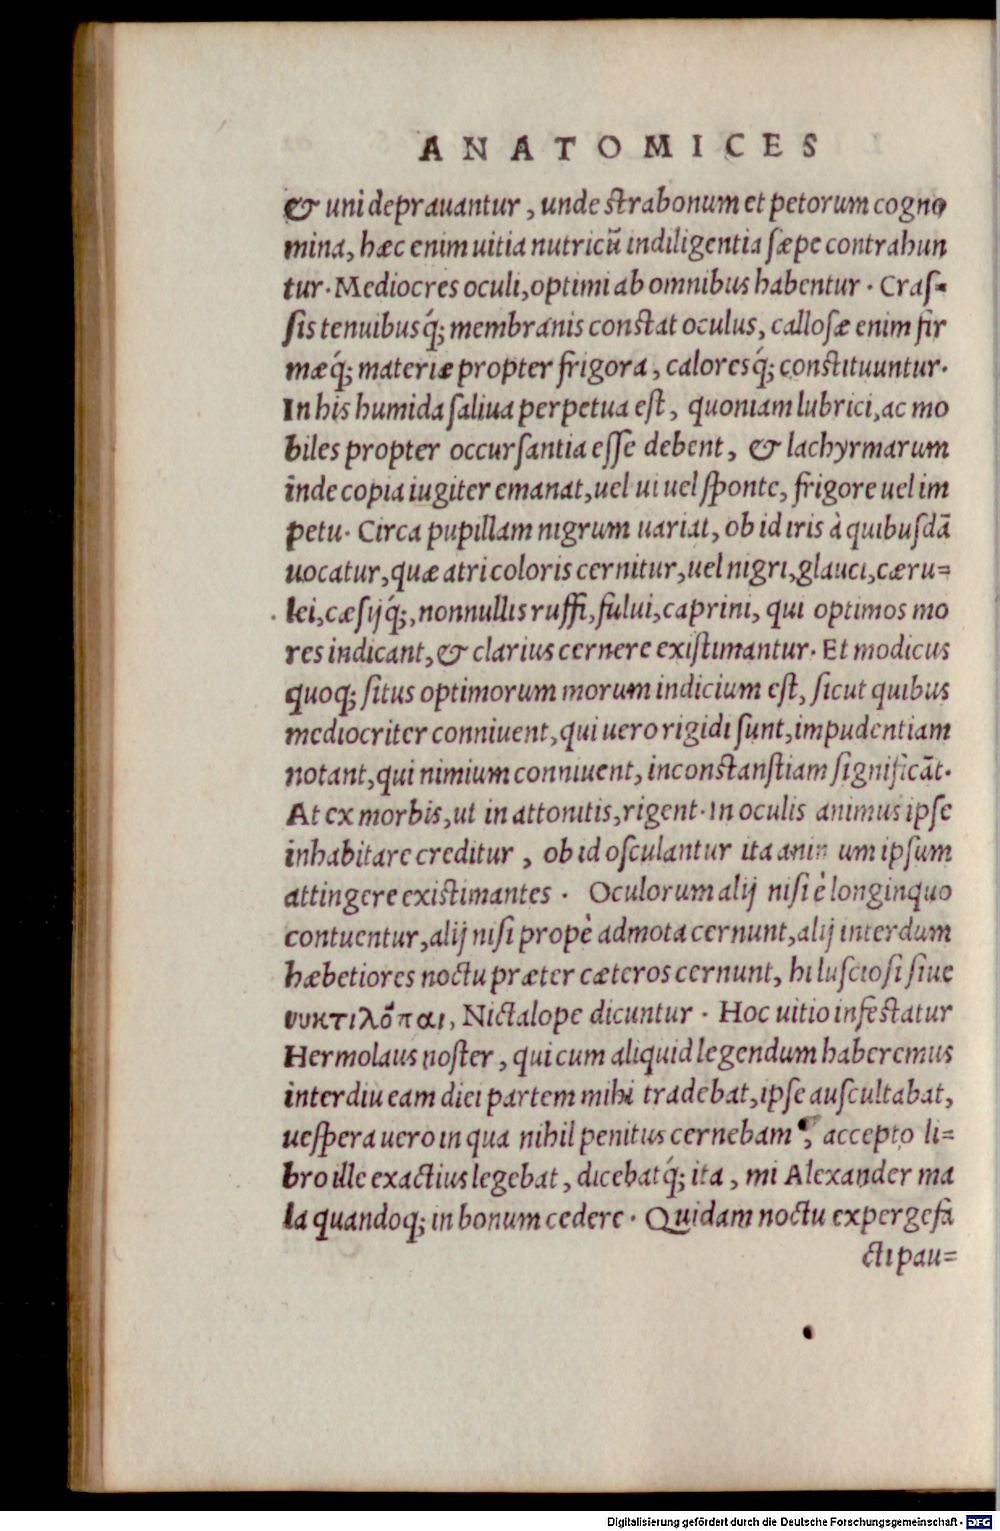 ANATOMICES
& uni deprauantur, unde ſtrabonum et petorum cogno
mina, hæc enim uitia nutricũ indiligentia ſæpe contrahun
tur. Mediocres oculi, optimi ab omnibus habentur. Craſ-
ſis tenuibusq́; membranis conſtat oculus, calloſæ enim fir
mæq́; materiæ propter frigora, caloresq́; conſtituuntur.
In his humida ſaliua perpetua eſt, quoniam lubrici, ac mo
biles propter occurſantia eſſe debent, & lachyrmarum
inde copia iugiter emanat, uel ui uel ſponte, frigore uel im
petu. Circa pupillam nigrum uariat, ob id iris à quibuſdã
uocatur, quæ atri coloris cernitur, uel nigri, glauci, cæru=
lei, cæſijq́;, nonnullis ruffi, fului, caprini, qui optimos mo
res indicant, & clarius cernere exiſtimantur. Et modicus
quoq; ſitus optimorum morum indicium eſt, ſicut quibus
mediocriter conniuent, qui uero rigidi ſunt, impudentiam
notant, qui nimium conniuent, inconſtanſtiam ſignificãt.
At ex morbis, ut in attonitis, rigent. In oculis animus ipſe
inhabitare creditur, ob id oſculantur ita anim um ipſum
attingere exiſtimantes. Oculorum alij niſi è longinquo
contuentur, alij niſi propè admota cernunt, alij interdum
hæbetiores noctu præter cæteros cernunt, hi luſcioſi ſiue
νυκτιλό̃παι, Nictalope dicuntur. Hoc uitio infeſtatur
Hermolaus noſter, qui cum aliquid legendum haberemus
interdiu eam diei partem mihi tradebat, ipſe auſcultabat,
ueſpera uero in qua nihil penitus cernebam, accepto li=
bro ille exactius legebat, dicebatq́; ita, mi Alexander ma
la quandoq; in bonum cedere. Quidam noctu expergefa
cti pau=
Digitalisierung gefördert durch die Deutsche Forschungsgemeinschaft - DFG